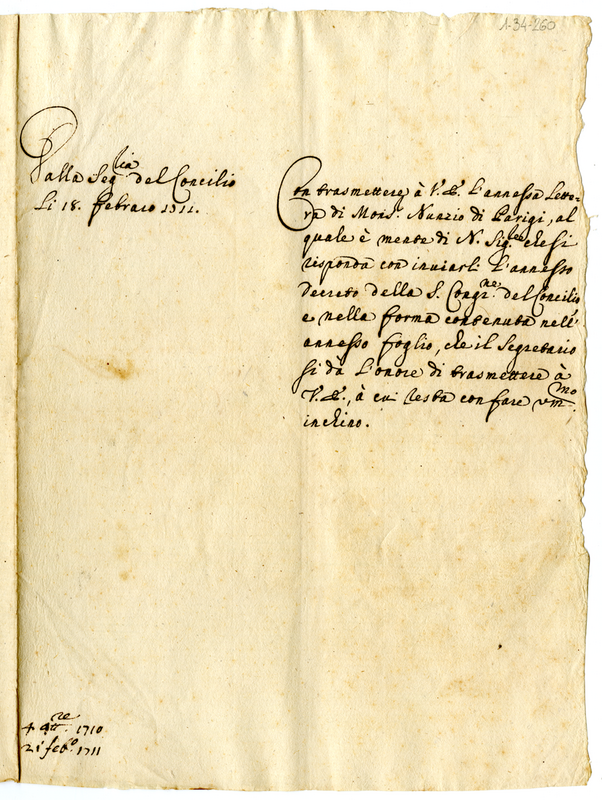 1-34-260
Dalla Seg.ria del Concilio
li 18. Febraro 1711.
Con trasmettere à V.E. l'annessa lette-
ra di Mons.r Nunzio di Parigi, al
quale è mente di N. Sig.re che si
risponda con inviarli l'annesso
decreto della S. Congr.ne del Concilio
e nella forma contenuta nell'
annesso foglio, che il Segretario
si dà l'onore di trasmettere à
V.E., à cui resta con fare um.mo
inchino.
4 8bre. 1710
21 feb.o 1711